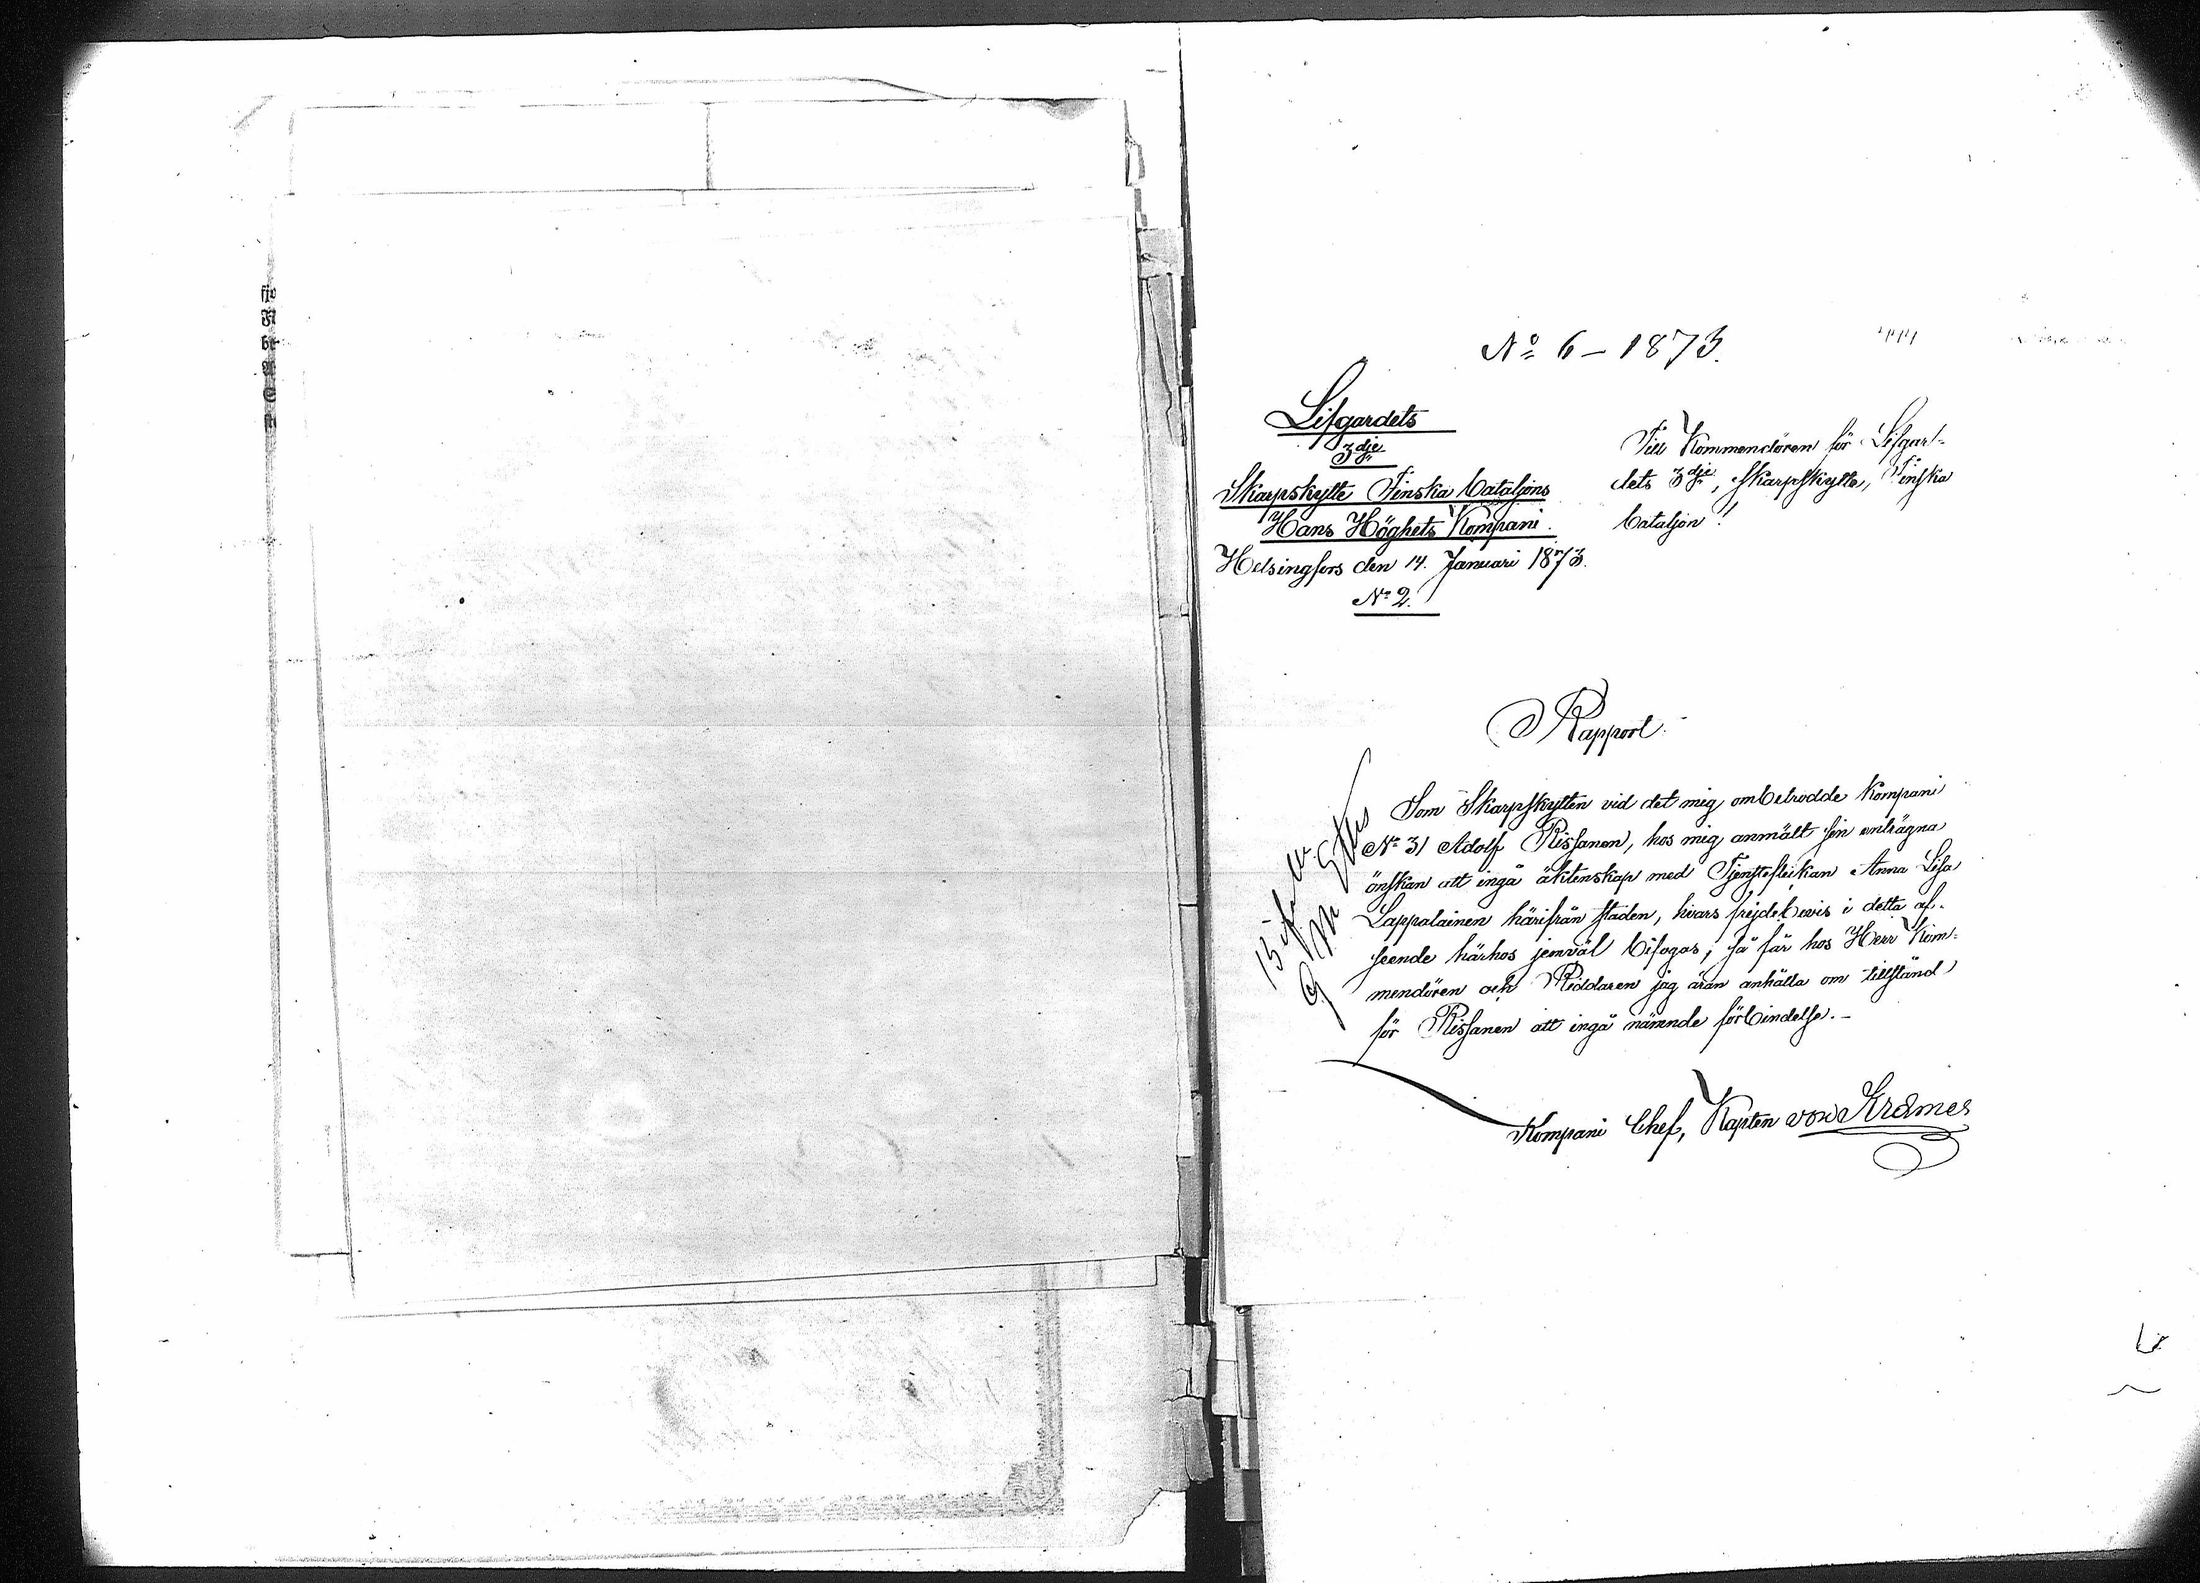 No 6 – 1873.
Lifgardets
3dje
Skarpskytte Finska bataljons
Hans Höghets Kompani.
Helsingfors den 14. Januari 1873.
No 2.
Till Kommendören för Lifgar-
dets 3dje, Skarpskytte, Finska
bataljon!
Rapport.
Som Skarpskytten vid det mig ombetrodde kompani
No 31 Adolf Rissanen, hos mig anmält sin enträgna
önskan att ingå äktenskap med Tjensteflickan Anna Lisa
Lappalainen härifrån staden, hvars frejdebevis i detta af-
seende härhos jemväl bifogas; så får hos Herr Kom-
mendören och Riddaren jag äran anhålla om tillstånd
för Rissanen att ingå nämnde förbindelse. –
Kompani Chef, Kapten von Kræmer